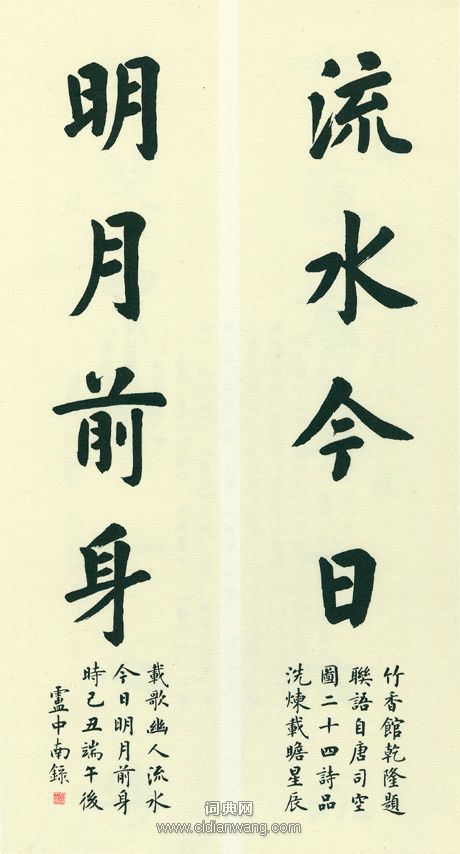 流水今日
竹香館乾隆題
聯語自唐司空
圖二十四詩品
洗煉載瞻星辰
明月前身
載歌幽人流水
今日明月前身
時己丑端午後
盧中南錄
词典网
www.cidianwang.com